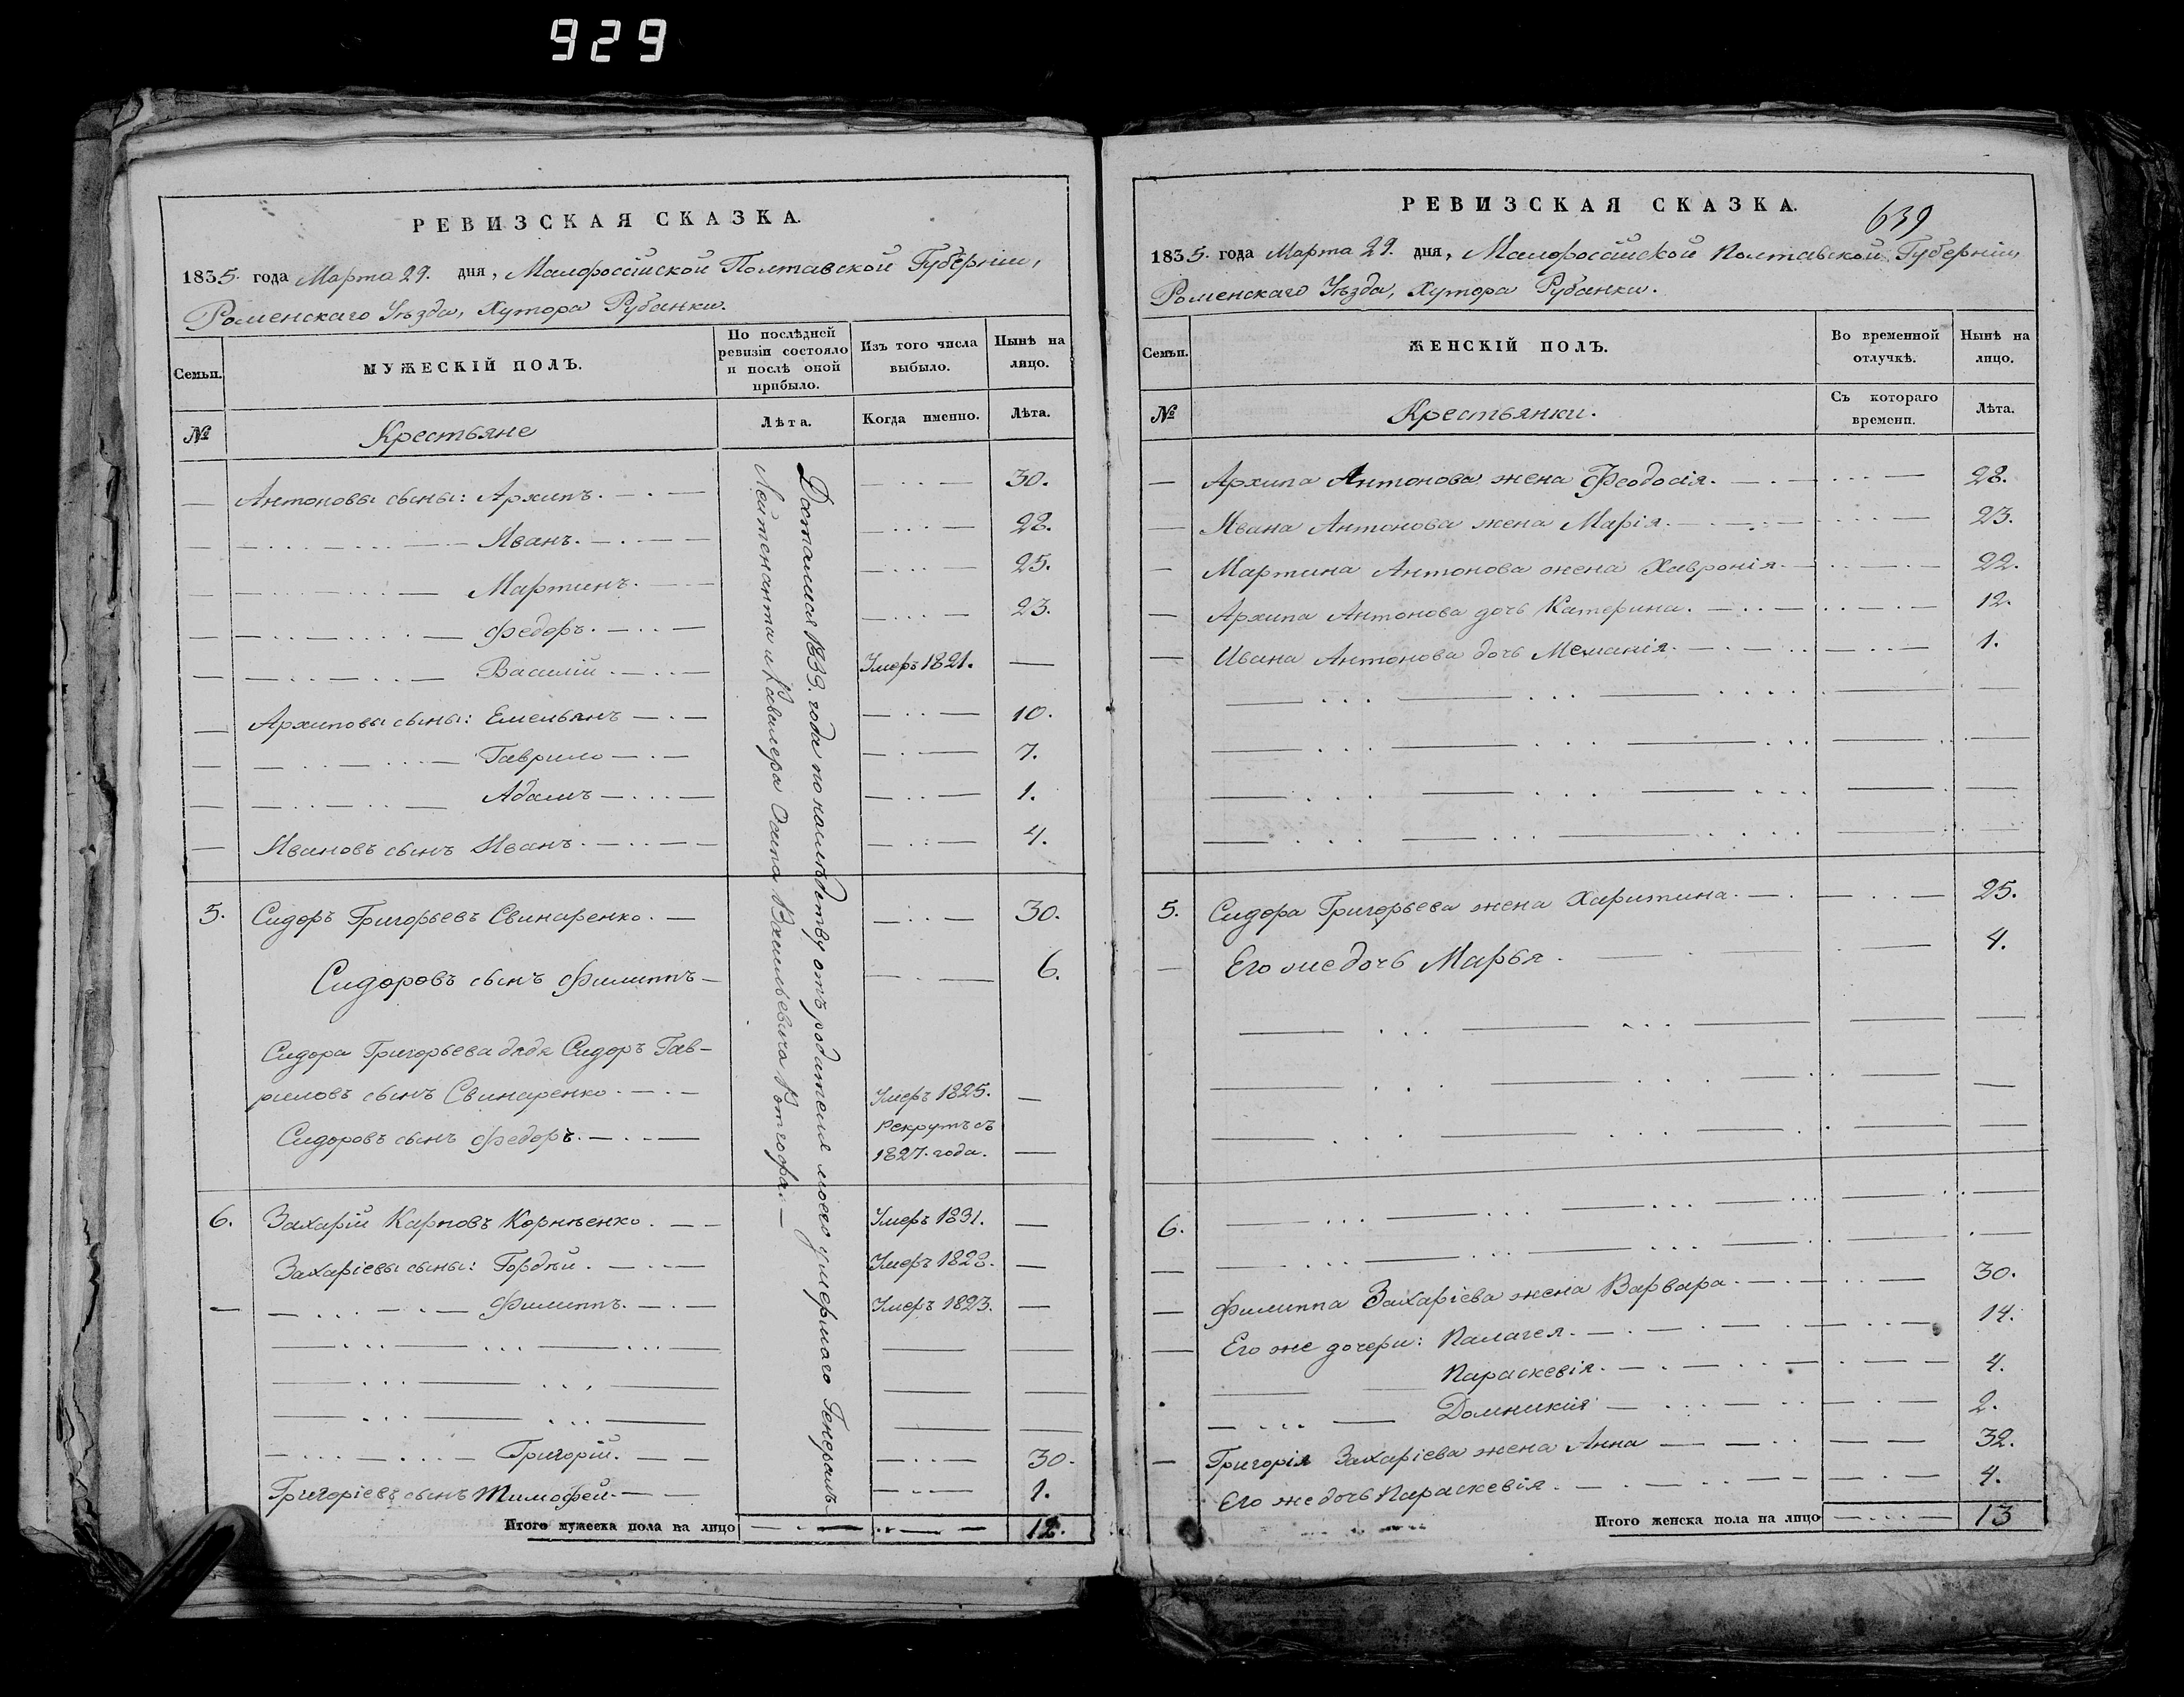 929
РЕВИЗСКАЯ СКАЗКА.
1835. года Марта 29. дня, Малороссійской Полтавской Губерніи,
Роменскаго Уѣзда, Хутора Рубанки.
Семьи.
МУЖЕСКІЙ ПОЛЪ.
По послѣдней ревизіи состояло и послѣ оной прибыло.
Изъ того числа выбыло.
Нынѣ на лицо.
№
Крестьяне
Лѣта.
Когда именно.
Лѣта.
Антоновы сыны: Архипъ. 30.
Иванъ. 28.
Мартинъ. 25.
Федоръ. 23.
Василій Умеръ 1821. —
Архиповы сыны: Емельянъ 10.
Гаврило 7.
Адамъ 1.
Ивановъ сынъ Иванъ. 4.
5. Сидоръ Григорьевъ Свинаренко. 30.
Сидоровъ сынъ Филиппъ 6.
Сидора Григорьева дядя Сидоръ Гав-
риловъ сынъ Свинаренко. Умеръ 1825. —
Сидоровъ сынъ Федоръ. Рекрутъ съ
1827. года. —
6. Захарій Карповъ Корнѣенко. Умеръ 1831. —
Захаріевы сыны: Гордѣй. Умеръ 1828. —
Филиппъ. Умеръ 1823. —
Григорій. 30.
Григоріевъ сынъ Тимофей. 1.
Итого мужеска пола на лицо 12.
года по наслѣдству отъ родителя моего умершаго Генералъ-
Лейтенанта и Кавалера Осипа
639
РЕВИЗСКАЯ СКАЗКА.
1835. года Марта 29. дня, Малороссійской Полтавской Губерніи,
Роменскаго Уѣзда, Хутора Рубанки.
Семьи.
ЖЕНСКІЙ ПОЛЪ.
Во временной отлучкѣ.
Нынѣ на лицо.
№
Крестьянки.
Съ котораго времени.
Лѣта.
Архипа Антонова жена Феодосія. 28.
Ивана Антонова жена Марія. 23.
Мартина Антонова жена Хавронія. 22.
Архипа Антонова дочь Катерина. 12.
Ивана Антонова дочь Меланія. 1.
5. Сидора Григорьева жена Харитина. 25.
Его же дочь Марья. 4.
6.
Филиппа Захаріева жена Варвара. 30.
Его же дочери: Палагея. 14.
Параскевія. 4.
Домникія 2.
Григорія Захаріева жена Анна 32.
Его же дочь Параскевія. 4.
Итого женска пола на лицо 13